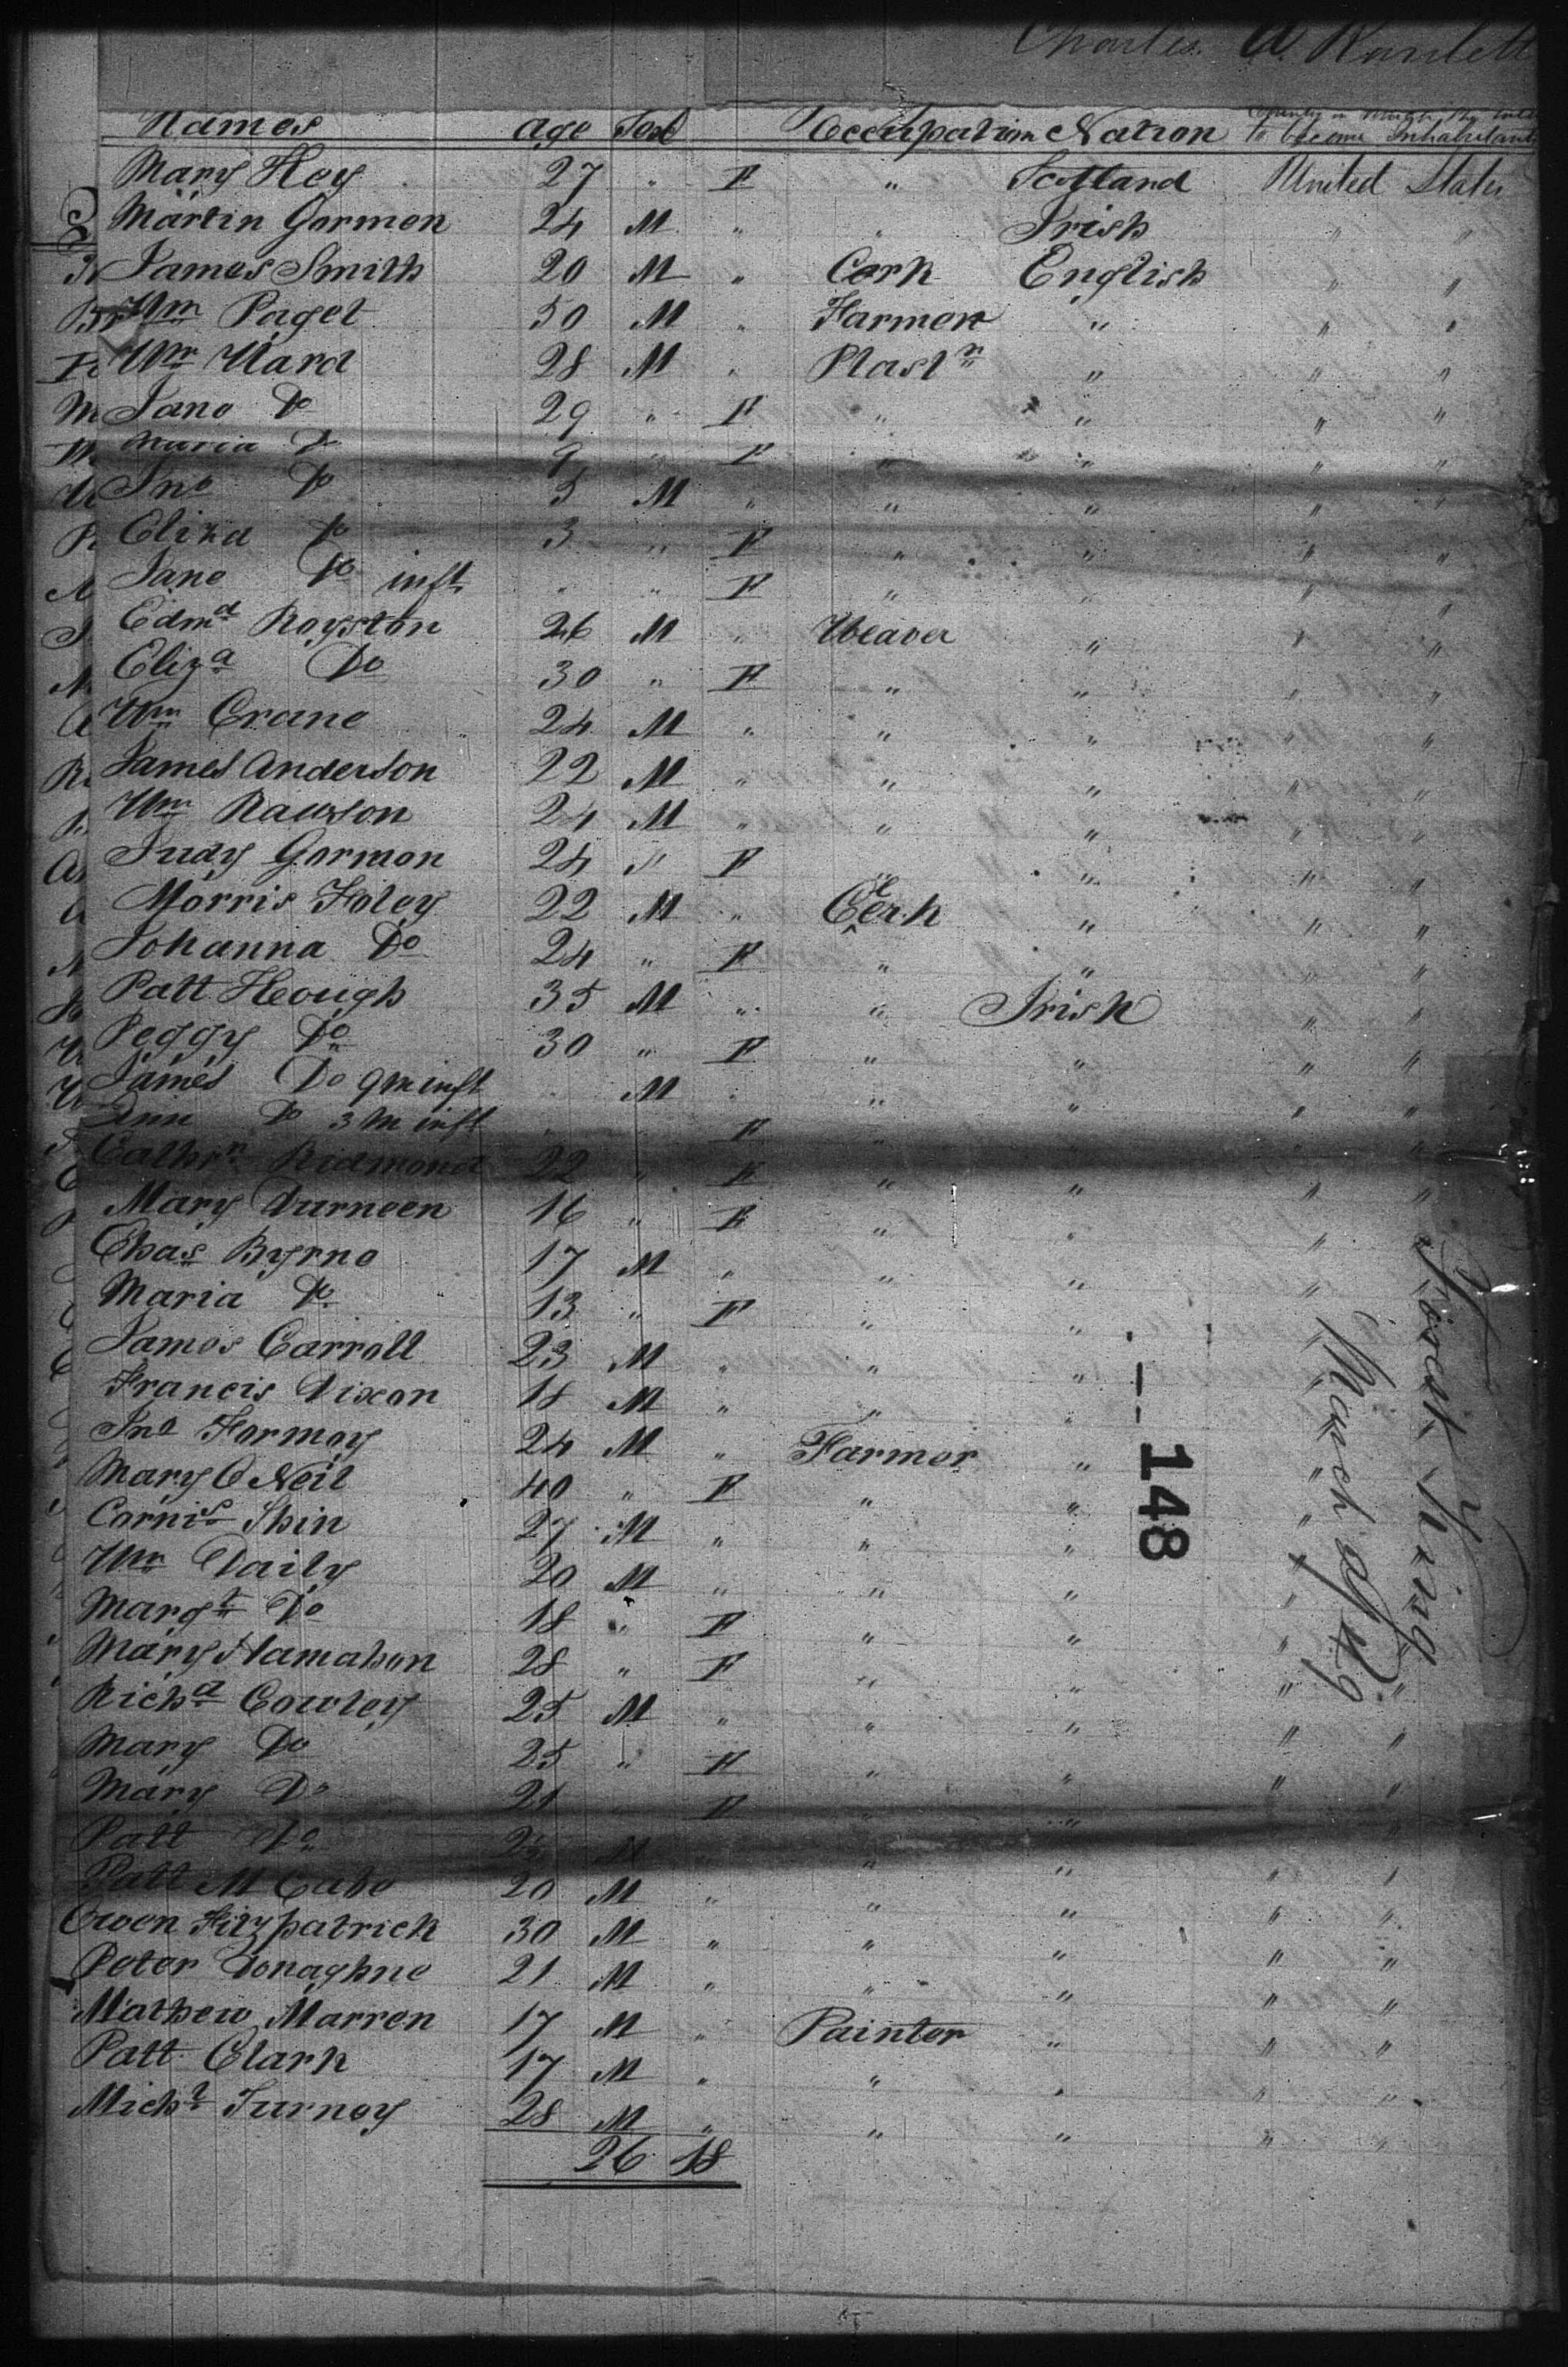 Charles A. Ranlett
Names Age Sex Occupation Nation Country in which they intend to become Inhabitants
Mary Hey 27 " F " Scotland United States
Martin Gormon 24 M " " Irish " "
James Smith 20 M " Cerk English " "
Wm Paget 50 M " Farmer " " "
Wm Ward 28 M " Plastr " " "
Jane Do 29 " F " " " "
Maria Do 9 " F " " " "
Jno Do 5 M " " " " "
Eliza Do 3 " F " " " "
Jane Do inft " " F " " " "
Edmd Royston 26 M " Weaver " " "
Eliza Do 30 " F " " " "
Wm Crane 24 M " " " " "
James Anderson 22 M " " " " "
Wm Rawson 24 M " " " " "
Judy Gormon 24 " F " " " "
Morris Foley 22 M " Clerk " " "
Johanna Do 24 " F " " " "
Patt Keough 35 M " " Irish " "
Peggy Do 30 " F " " " "
James Do 9 m inft " M " " " " "
Ann Do 3 m inft " " F " " " "
Cathrn Ridmond 22 " F " " " "
Mary Durneen 16 " F " " " "
Chas Byrne 17 M " " " " "
Maria Do 13 " F " " " "
James Carroll 23 M " " " " "
Francis Dixon 18 M " " " " "
Jno Formoy 24 M " Farmer " " "
Mary O Neil 40 " F " " " "
Corns Shin 27 M " " " " "
Wm Daily 20 M " " " " "
Margt Do 18 " F " " " "
Mary Hamahon 28 " F " " " "
Richd Cowley 25 M " " " " "
Mary Do 25 " F " " " "
Mary Do 21 " F " " " "
Patt Do M " " " " "
Patt McCabe 20 M " " " " "
Owen Fitzpatrick 30 M " " " " "
Peter Donaghue 21 M " " " " "
Mathew Marren 17 M " Painter " " "
Patt Clark 17 M " " " " "
Michl Turnoy 28 M " " " " "
26 18
148
March 2d 49